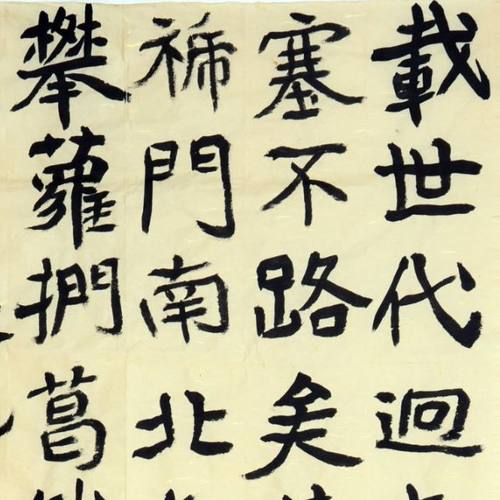 載世代迥
塞不路矣
門南北
攀蘿捫葛